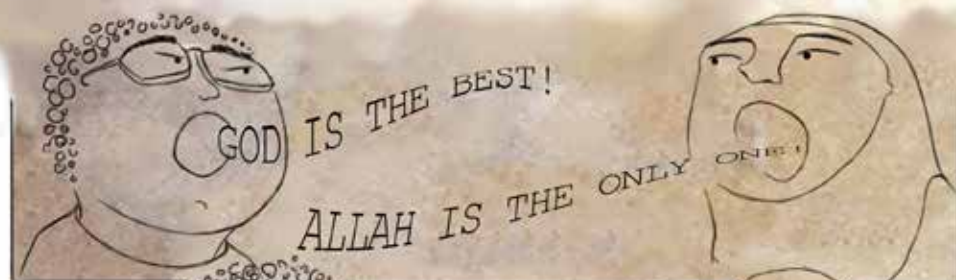 GOD IS THE BEST!
ALLAH IS THE ONLY ONE!